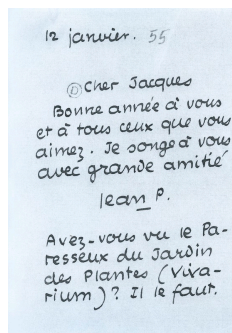 12 janvier. 55
① Cher Jacques
Bonne année à vous
et à tous ceux que vous
aimez. Je songe à vous
avec grande amitié
Jean P.
Avez-vous vu le Pa-
resseux du Jardin
des Plantes (Viva-
rium)? Il le faut.